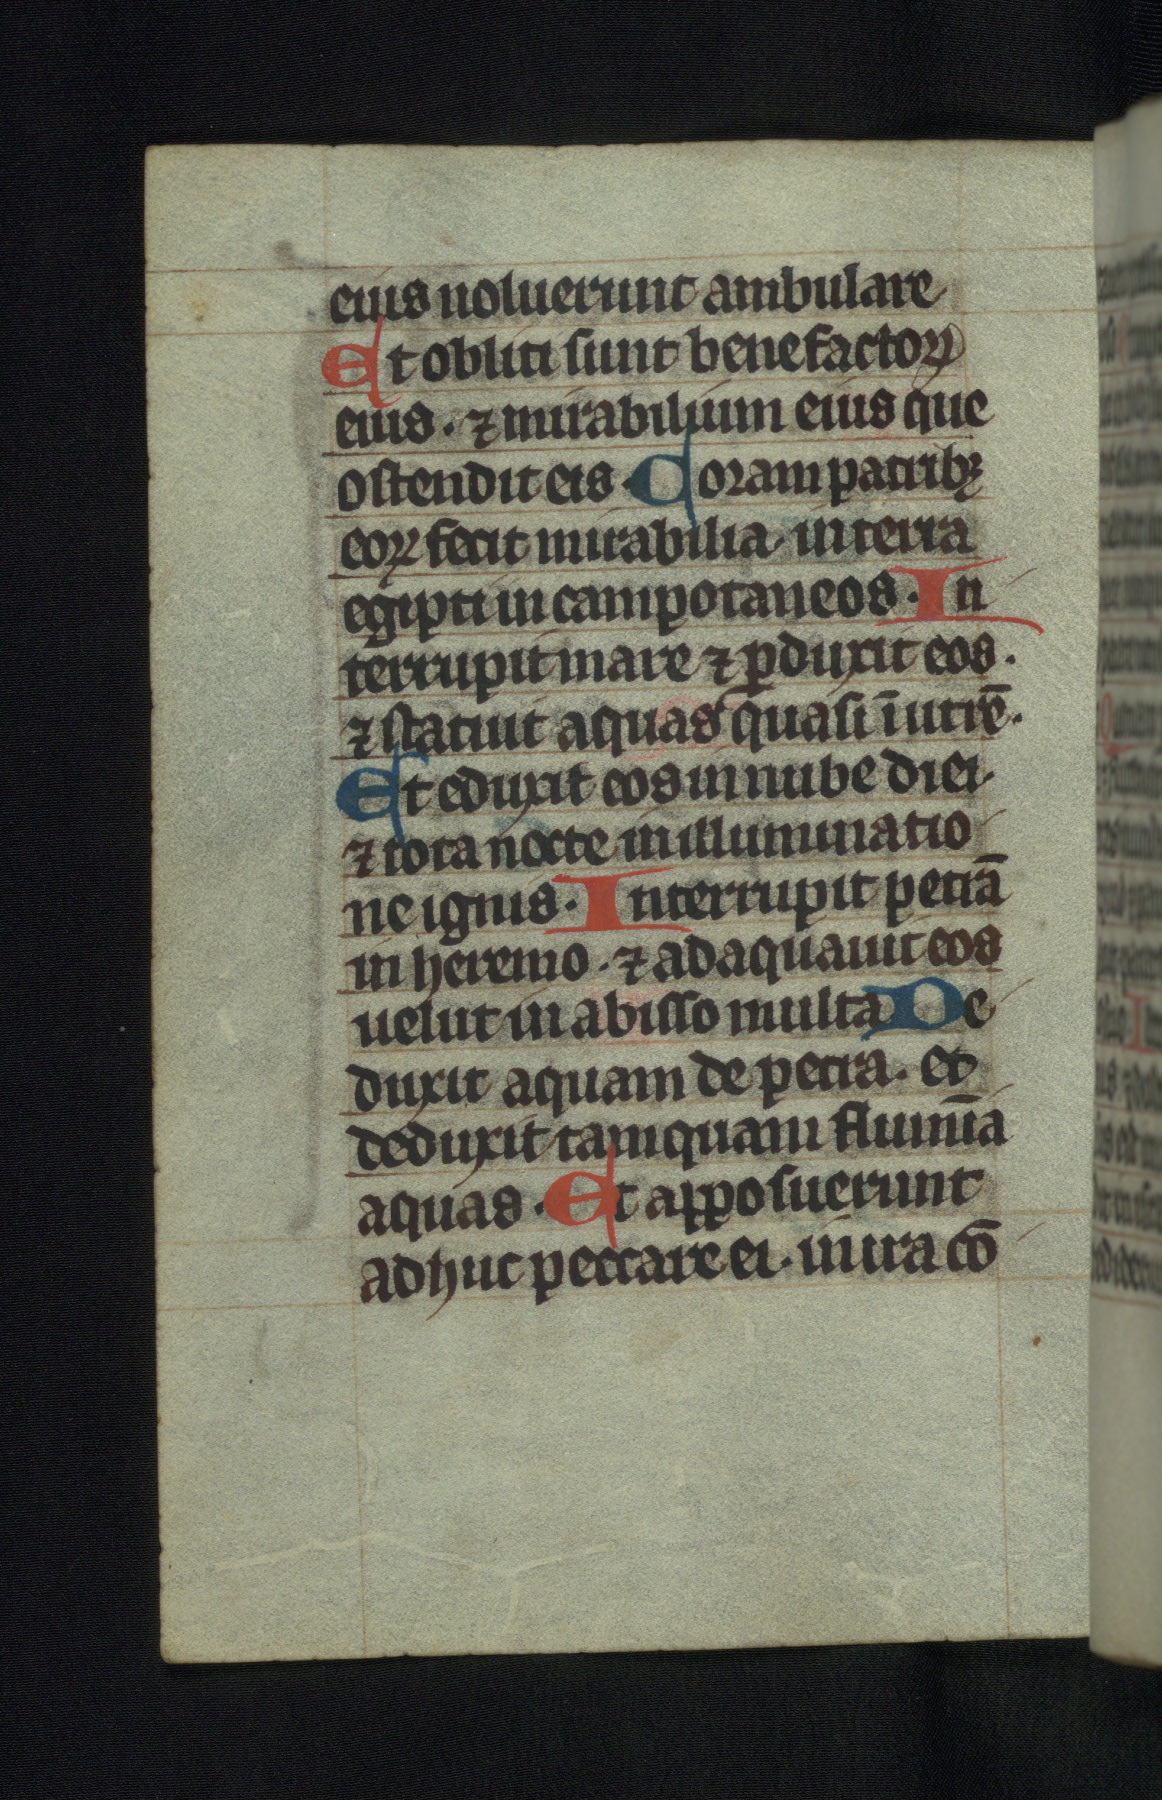 eius noluerunt ambulare
Et obliti sunt benefactoꝝ
eius · ⁊ mirabilium eius que
ostendit eis · Coram patribꝫ
eoꝝ fecit mirabilia · in terra
egipti in campo taneos · In
terrupit mare ⁊ ꝑduxit eos ·
⁊ statuit aquas quasi ī utrē ·
Et eduxit eos in nube diei ·
⁊ tota nocte in illuminatio
ne ignis · Interrupit petrā
in heremo · ⁊ adaquauit eos
uelut in abisso multa De
duxit aquam de petra · et
deduxit tamquam flumīa
aquas · Et apposuerunt
adhuc peccare ei · in ira cō